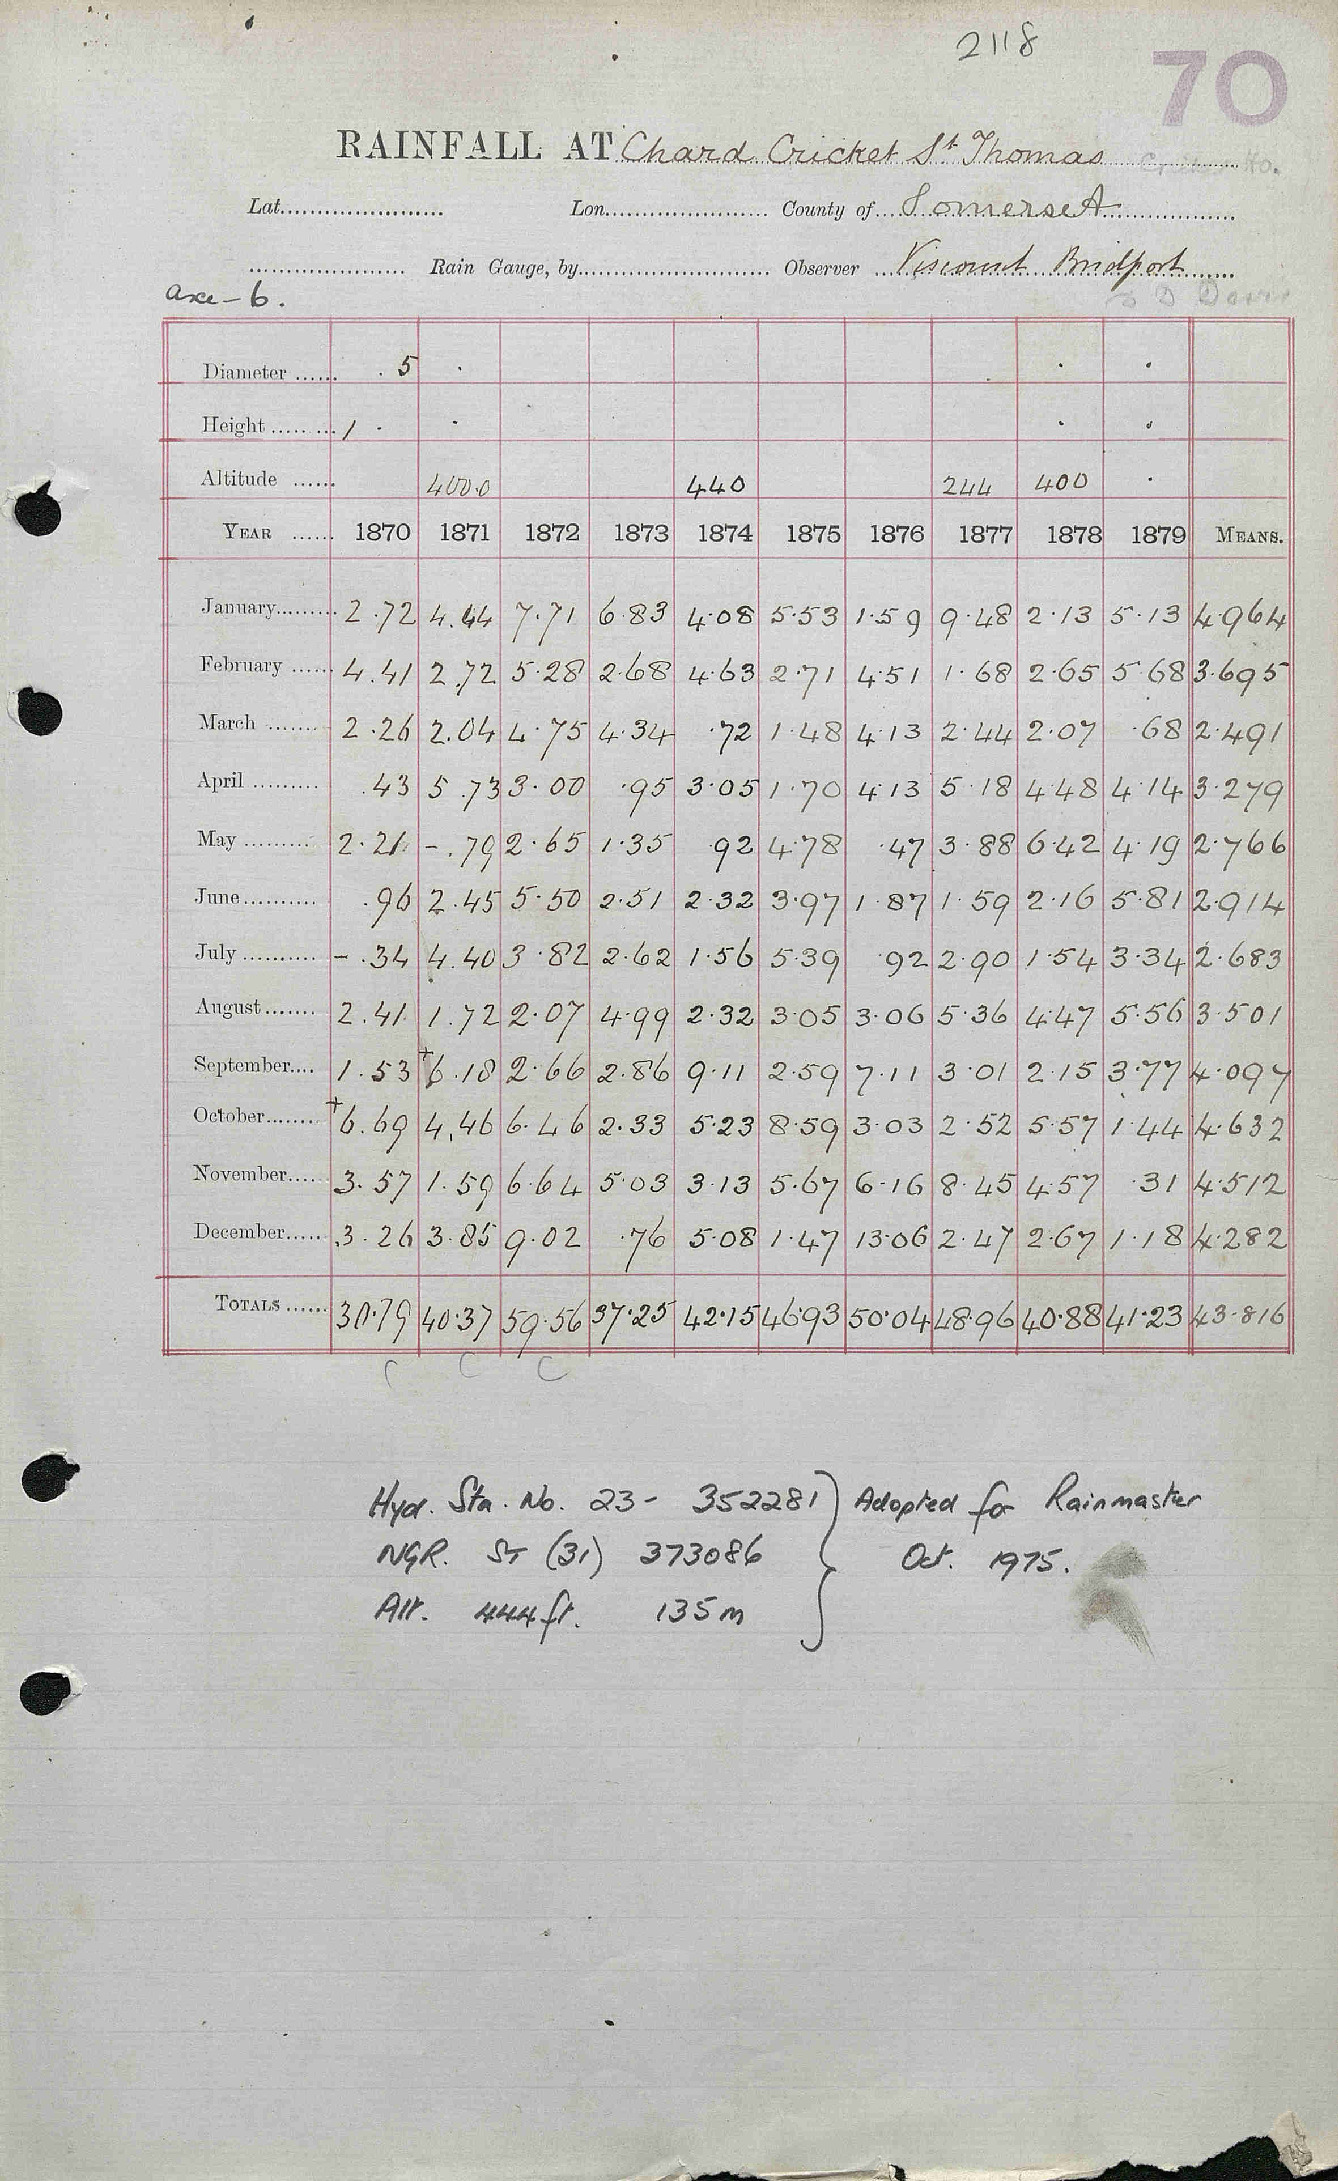 2118
70
RAINFALL AT Chard Cricket St Thomas
Lat...................... Lon...................... County of... Somerset
..................... Rain Gauge, by.......................... Observer ... Viscount Bridport
axe - 6.
Diameter ...... . 5 . . .
Height ......... 1 . . . .
Altitude ...... 400.0 440 244 400 .
YEAR ...... 1870 1871 1872 1873 1874 1875 1876 1877 1878 1879 MEANS.
January......... 2.72 4.44 7.71 6.83 4.08 5.53 1.59 9.48 2.13 5.13 4.964
February ...... 4.41 2.72 5.28 2.68 4.63 2.71 4.51 1.68 2.65 5.68 3.695
March ......... 2.26 2.04 4.75 4.34 .72 1.48 4.13 2.44 2.07 .68 2.491
April ......... .43 5.73 3.00 .95 3.05 1.70 4.13 5.18 4.48 4.14 3.279
May ......... 2.21 -.79 2.65 1.35 .92 4.78 .47 3.88 6.42 4.19 2.766
June.......... .96 2.45 5.50 2.51 2.32 3.97 1.87 1.59 2.16 5.81 2.914
July .......... -.34 4.40 3.82 2.62 1.56 5.39 .92 2.90 1.54 3.34 2.683
August....... 2.41 1.72 2.07 4.99 2.32 3.05 3.06 5.36 4.47 5.56 3.501
September.... 1.53 +6.18 2.66 2.86 9.11 2.59 7.11 3.01 2.15 3.77 4.097
October........ +6.69 4.46 6.46 2.33 5.23 8.59 3.03 2.52 5.57 1.44 4.632
November..... 3.57 1.59 6.64 5.03 3.13 5.67 6.16 8.45 4.57 .31 4.512
December..... 3.26 3.85 9.02 .76 5.08 1.47 13.06 2.47 2.67 1.18 4.282
TOTALS ...... 30.79 40.37 59.56 37.25 42.15 46.93 50.04 48.96 40.88 41.23 43.816
C C C
Hyd. Sta. No. 23 - 352281 } Adopted for Rainmaster
NGR. ST (31) 373086 Oct. 1975.
Alt. 444 ft. 135 m